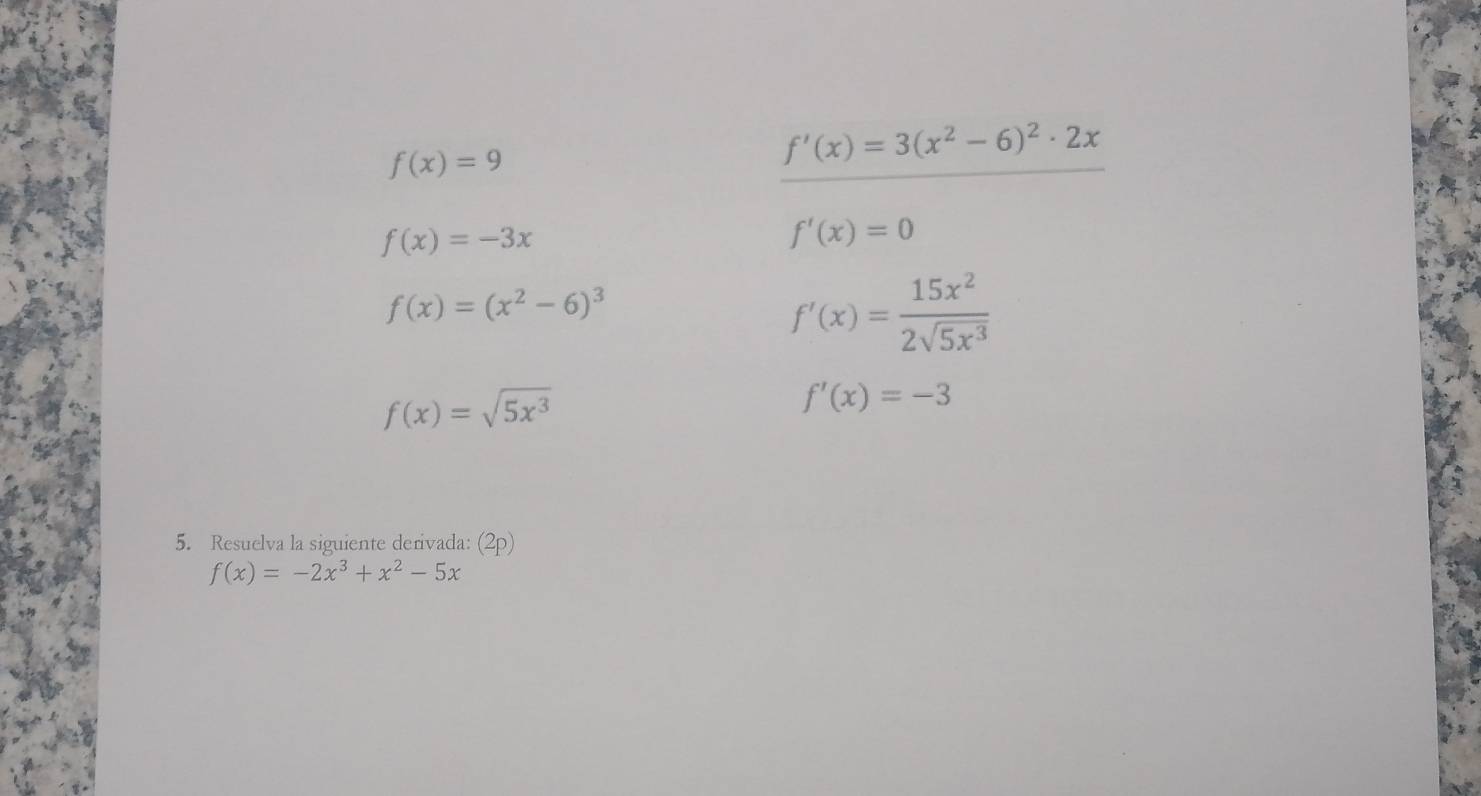 f(x) = 9
f'(x) = 3(x² − 6)² · 2x
f(x) = −3x
f'(x) = 0
f(x) = (x² − 6)³
f'(x) = \frac{15x²}{2\sqrt{5x³}}
f(x) = \sqrt{5x³}
f'(x) = −3
5. Resuelva la siguiente derivada: (2p)
f(x) = −2x³ + x² − 5x